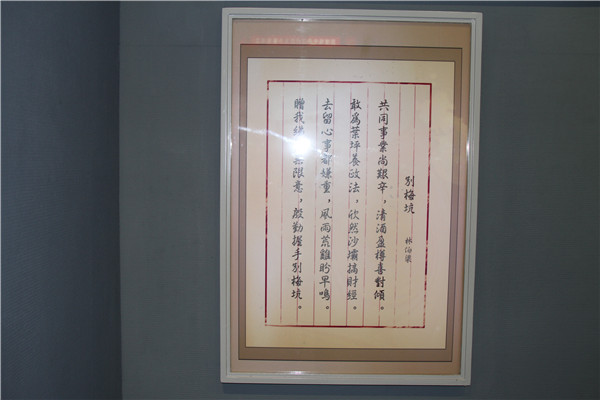 別梅坑
林伯渠
共同事業尚艱辛，清酒盈樽喜對傾。
敢為葉坪養政法，欣然沙壩搞財經。
去留心事都嫌重，風雨荒雞盼早鳴。
贈我限意，殷勤握手別梅坑。